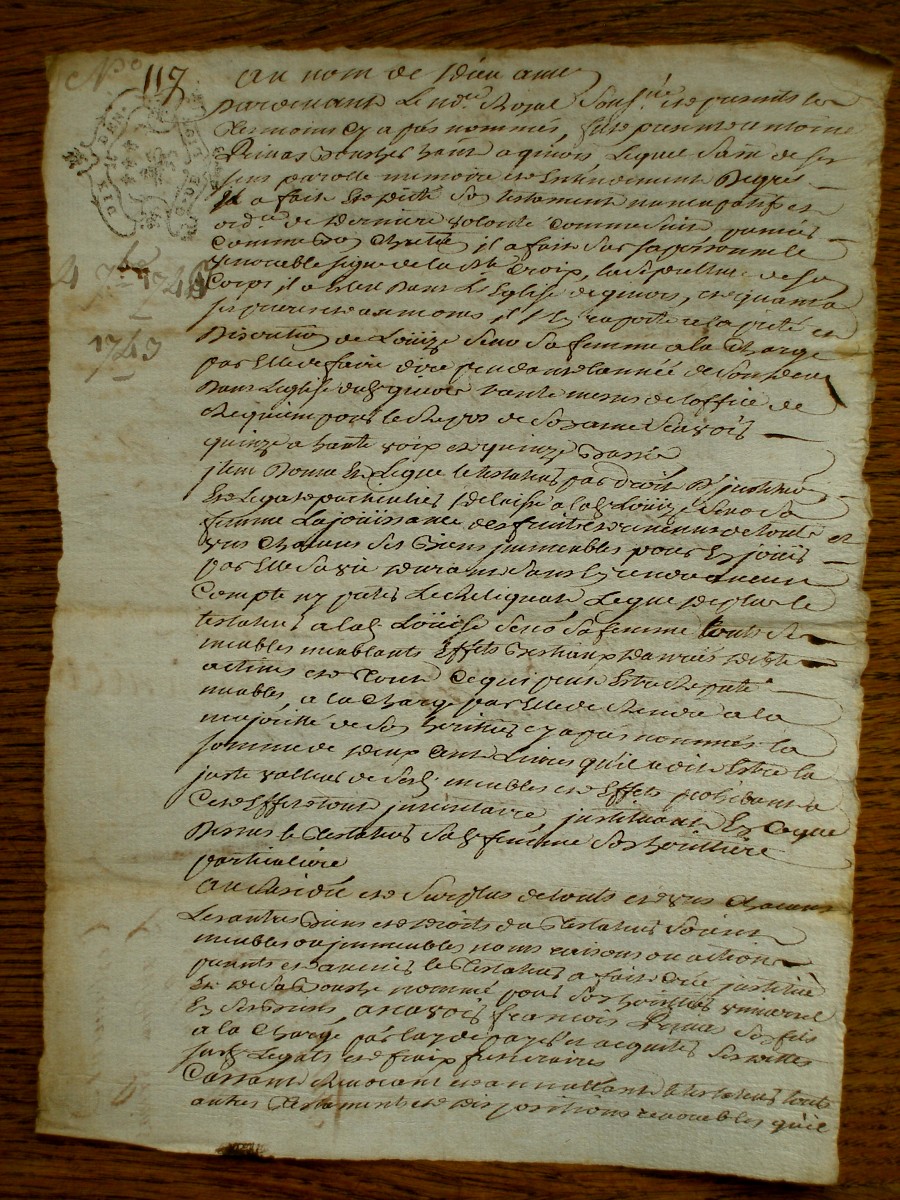 N.o 117
au nom de Dieu amen
pardevant Le no.re Royal Sous.né et presents les
Tesmoins Cy apas nommés, fut present antoine
habitant a , Lequel Sain de ses
sens parolle memoire et Entendement De gres
Il a fait et Dicté Son testament nuncupatif et
ord.re de Derniere volonté Comme suit premier
Comme bon Chretien il a fait Sur sa personne le
venerable signe de la S.te Croix, la Sepulture de son
Corps, il a Eleu Dans L'Eglise de , et quant a
ses prieres et aumones, il s'En raporte a la pieté et
Discretion de Loüize Sa femme a la Charge
par Elle de faire dire pendant l'année de Son Deces
Dans L'eglise dud. trante messes de L'office de
Requiem pour le Repos de Son ame Scavoir
quinze a haute voix et quinze Basses
4 7bre 1746
1747
jtem Donne Et Legue le testateur par droit D'institution
Et Legat particulier Delaissé a lad. Loüize Sa
femme La jouissance des fruits et revenus de touts et
uns Chacuns Ses Biens immeubles pour En jouir
par Elle Sa vie Durant Sans En rendre aucun
Compte ny preter Le Reliquat Legue De plus le
testateur a lad. Loüise Sa femme touts Ses
meubles meublants Effets Bestiaux Danrées Debtes
actives et Tout Ce qui peut Estre Reputé
meubles, a la Charge par Elle de Rendre a la
majorité de Son heritier Cy apas nommés la
somme de Deux Cent Livres qu'il a dit Estre la
juste valleur de Sesd. meubles et Effets prohibant a
Cet Effet tout inventaire instituant En Ce que
Dessus le Testateur Sad. femme Son heritiere
particuliere
Au Residu et Surplus de touts et uns Chacuns
Les autres Biens et Droits du Testateur Soient
meubles ou immeubles noms raisons ou actions
presents et avenir le Testateur a fait Creé institué
Et De Sa Bouche nommé pour Son heritier universel
En Ses Biens, a scavoir francois Son fils
a la Charge par luy de payer et acquiter Ses Dettes
susd. Legats et fraix funeraires
Cassant Revocant et annullant le testateur touts
autres Testaments et Dispositions revocables qu'il